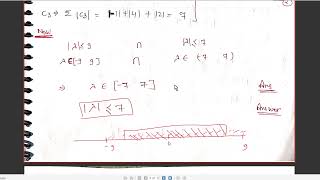 C3 → Σ |C3| = |-1|+|4|+|2| = 7
Now
|λ| ≤ 9 ∩ |λ| ≤ 7
λ∈[-9 9] ∩ λ∈ [-7 7]
⇒ λ∈[-7 7] Ans
|λ| ≤ 7 Answer
-9 0 9